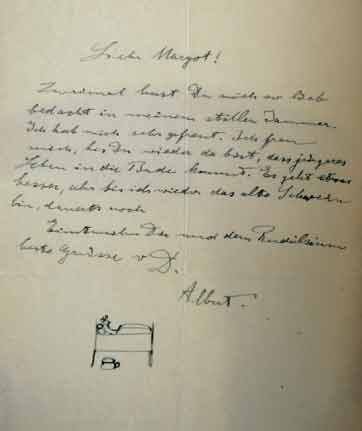 Liebe Margot!
Zweimal hast Du mich so lieb
bedacht in meinem stillen Jammer.
Ich hab mich sehr gefreut. Ich freu
mich, bis Du wieder da bist, dass jüngeres
Leben in die Bude kommt. Es geht etwas
besser, aber bis ich wieder das alte Schwein
bin, dauerts noch
Einstweilen Dir und dem
beste Grüsse v. D.
Albert.